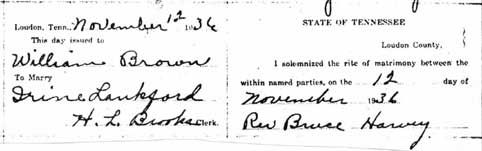 Loudon, Tenn., November 12 1936
This day issued to
William Brown
To Marry
Irine Lankford
H. L. Brooks Clerk.
STATE OF TENNESSEE
Loudon County,
I solemnized the rite of matrimony between the
within named parties, on the 12 day of
November 1936
Rev Bruce Harvey